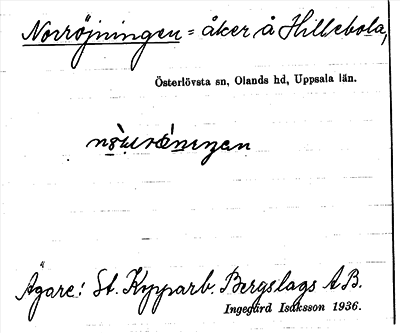 Norröjningen = åker å Hillebola,
Österlövsta sn, Olands hd, Uppsala län.
Ägare: St. Kopparb. Bergslags AB.
Ingegärd Isaksson 1936.